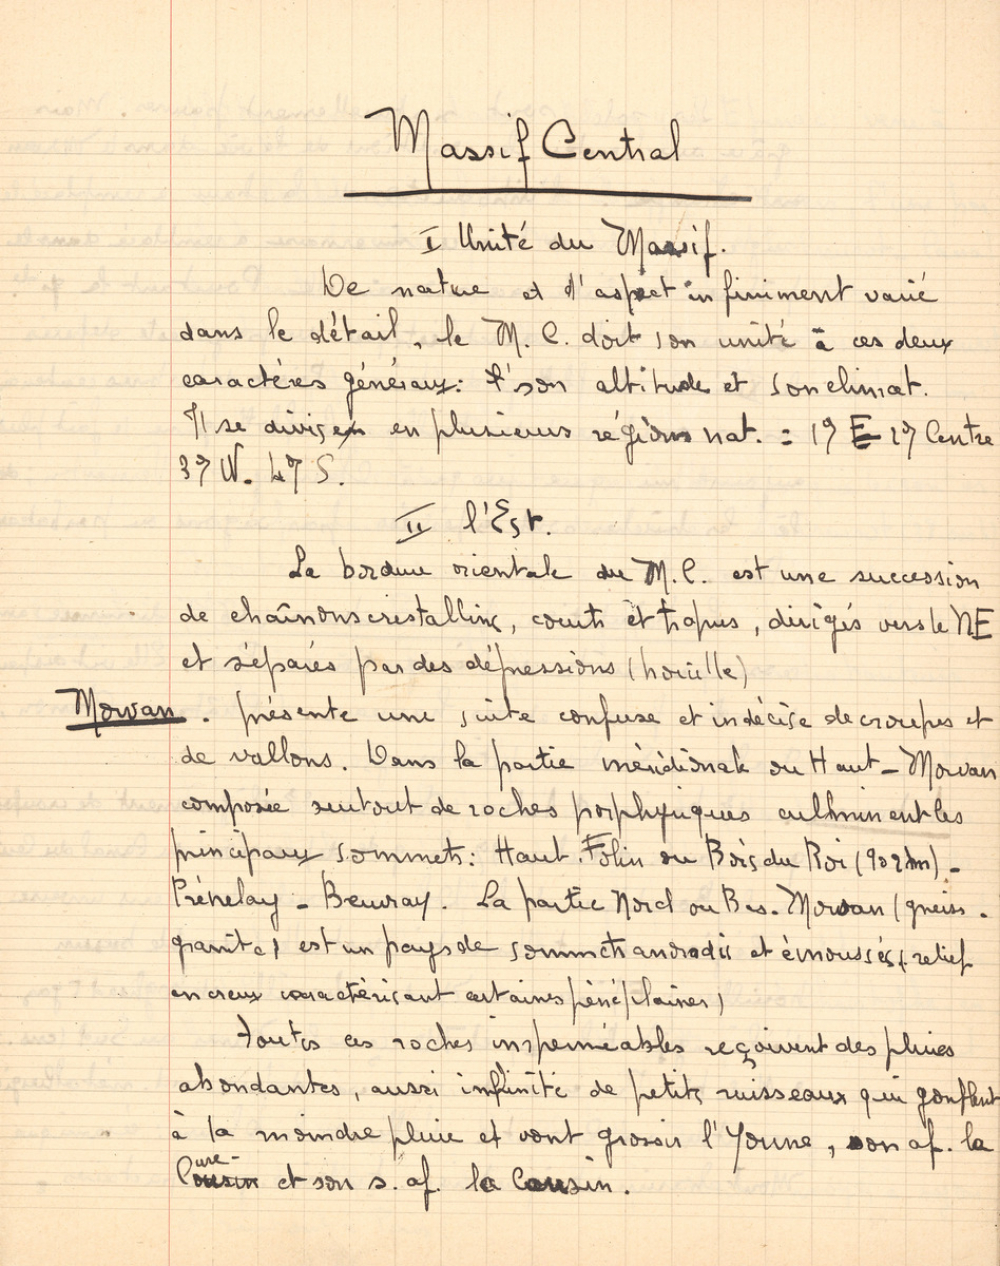 Massif Central
I Unité du Massif.
De nature et d'aspect infiniment varié
dans le détail, le M. C. doit son unité à ces deux
caractères généraux: son altitude et son climat.
Il se divise en plusieurs régions nat. : 1º E 2º Centre
3º W. 4º S.
II l'Est.
La bordure orientale du M.C. est une succession
de chaînons cristallins, courts et trapus, dirigés vers le NE
et séparés par des dépressions (houille)
Morvan. présente une suite confuse et indécise de croupes et
de vallons. Dans la partie méridionale ou Haut-Morvan
composée surtout de roches porphyriques culminent les
principaux sommets: Haut.Folin ou Bois du Roi (902m).-
Prénelay - Beuvray. La partie Nord ou Bas-Morvan (gneiss.
granite) est un pays de sommets arrondis et émoussés (relief
en creux caractérisant certaines pénéplaines)
Toutes ces roches imperméables reçoivent des pluies
abondantes, aussi infinité de petits ruisseaux qui gonflent
à la moindre pluie et vont grossir l'Yonne, son af. la
Cure et son s. af. le Cousin.